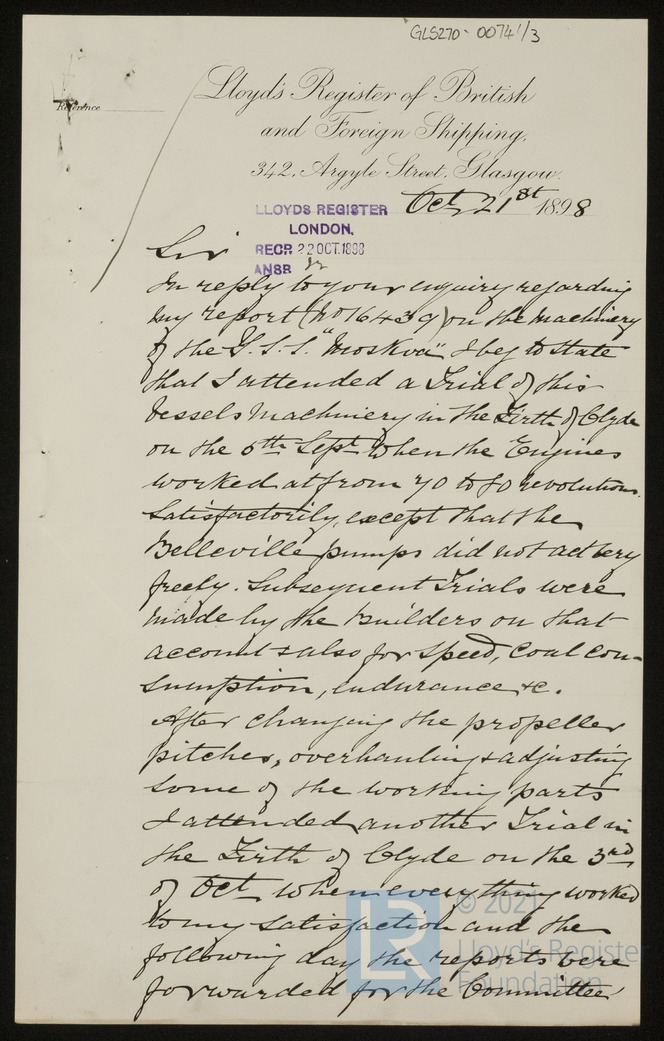 GLS270-0074/3
Lloyd's Register of British
and Foreign Shipping,
Reference
342, Argyle Street, Glasgow.
Oct 21st 1898
LLOYDS REGISTER
LONDON.
RECR 22 OCT.1898
ANSR
Sir
In reply to your enquiry regarding
my report (No 16439) on the Machinery
of the T.S.S. "Moskva" I beg to state
that I attended a Trial of this
Vessels Machinery in the Firth of Clyde
on the 5th Sept when the Engines
worked at from 70 to 80 revolutions
satisfactorily, except that the
Belleville pumps did not act very
freely. Subsequent Trials were
made by the Builders on that
account & also for Speed, Coal Con-
sumption, endurance &c.
After changing the propeller
pitches, overhauling & adjusting
some of the working parts
I attended another Trial in
the Firth of Clyde on the 3rd
of Oct, when everything worked
to my satisfaction and the
following day the reports were
forwarded for the Committee
LR
© 2021
Lloyd's Register
Foundation